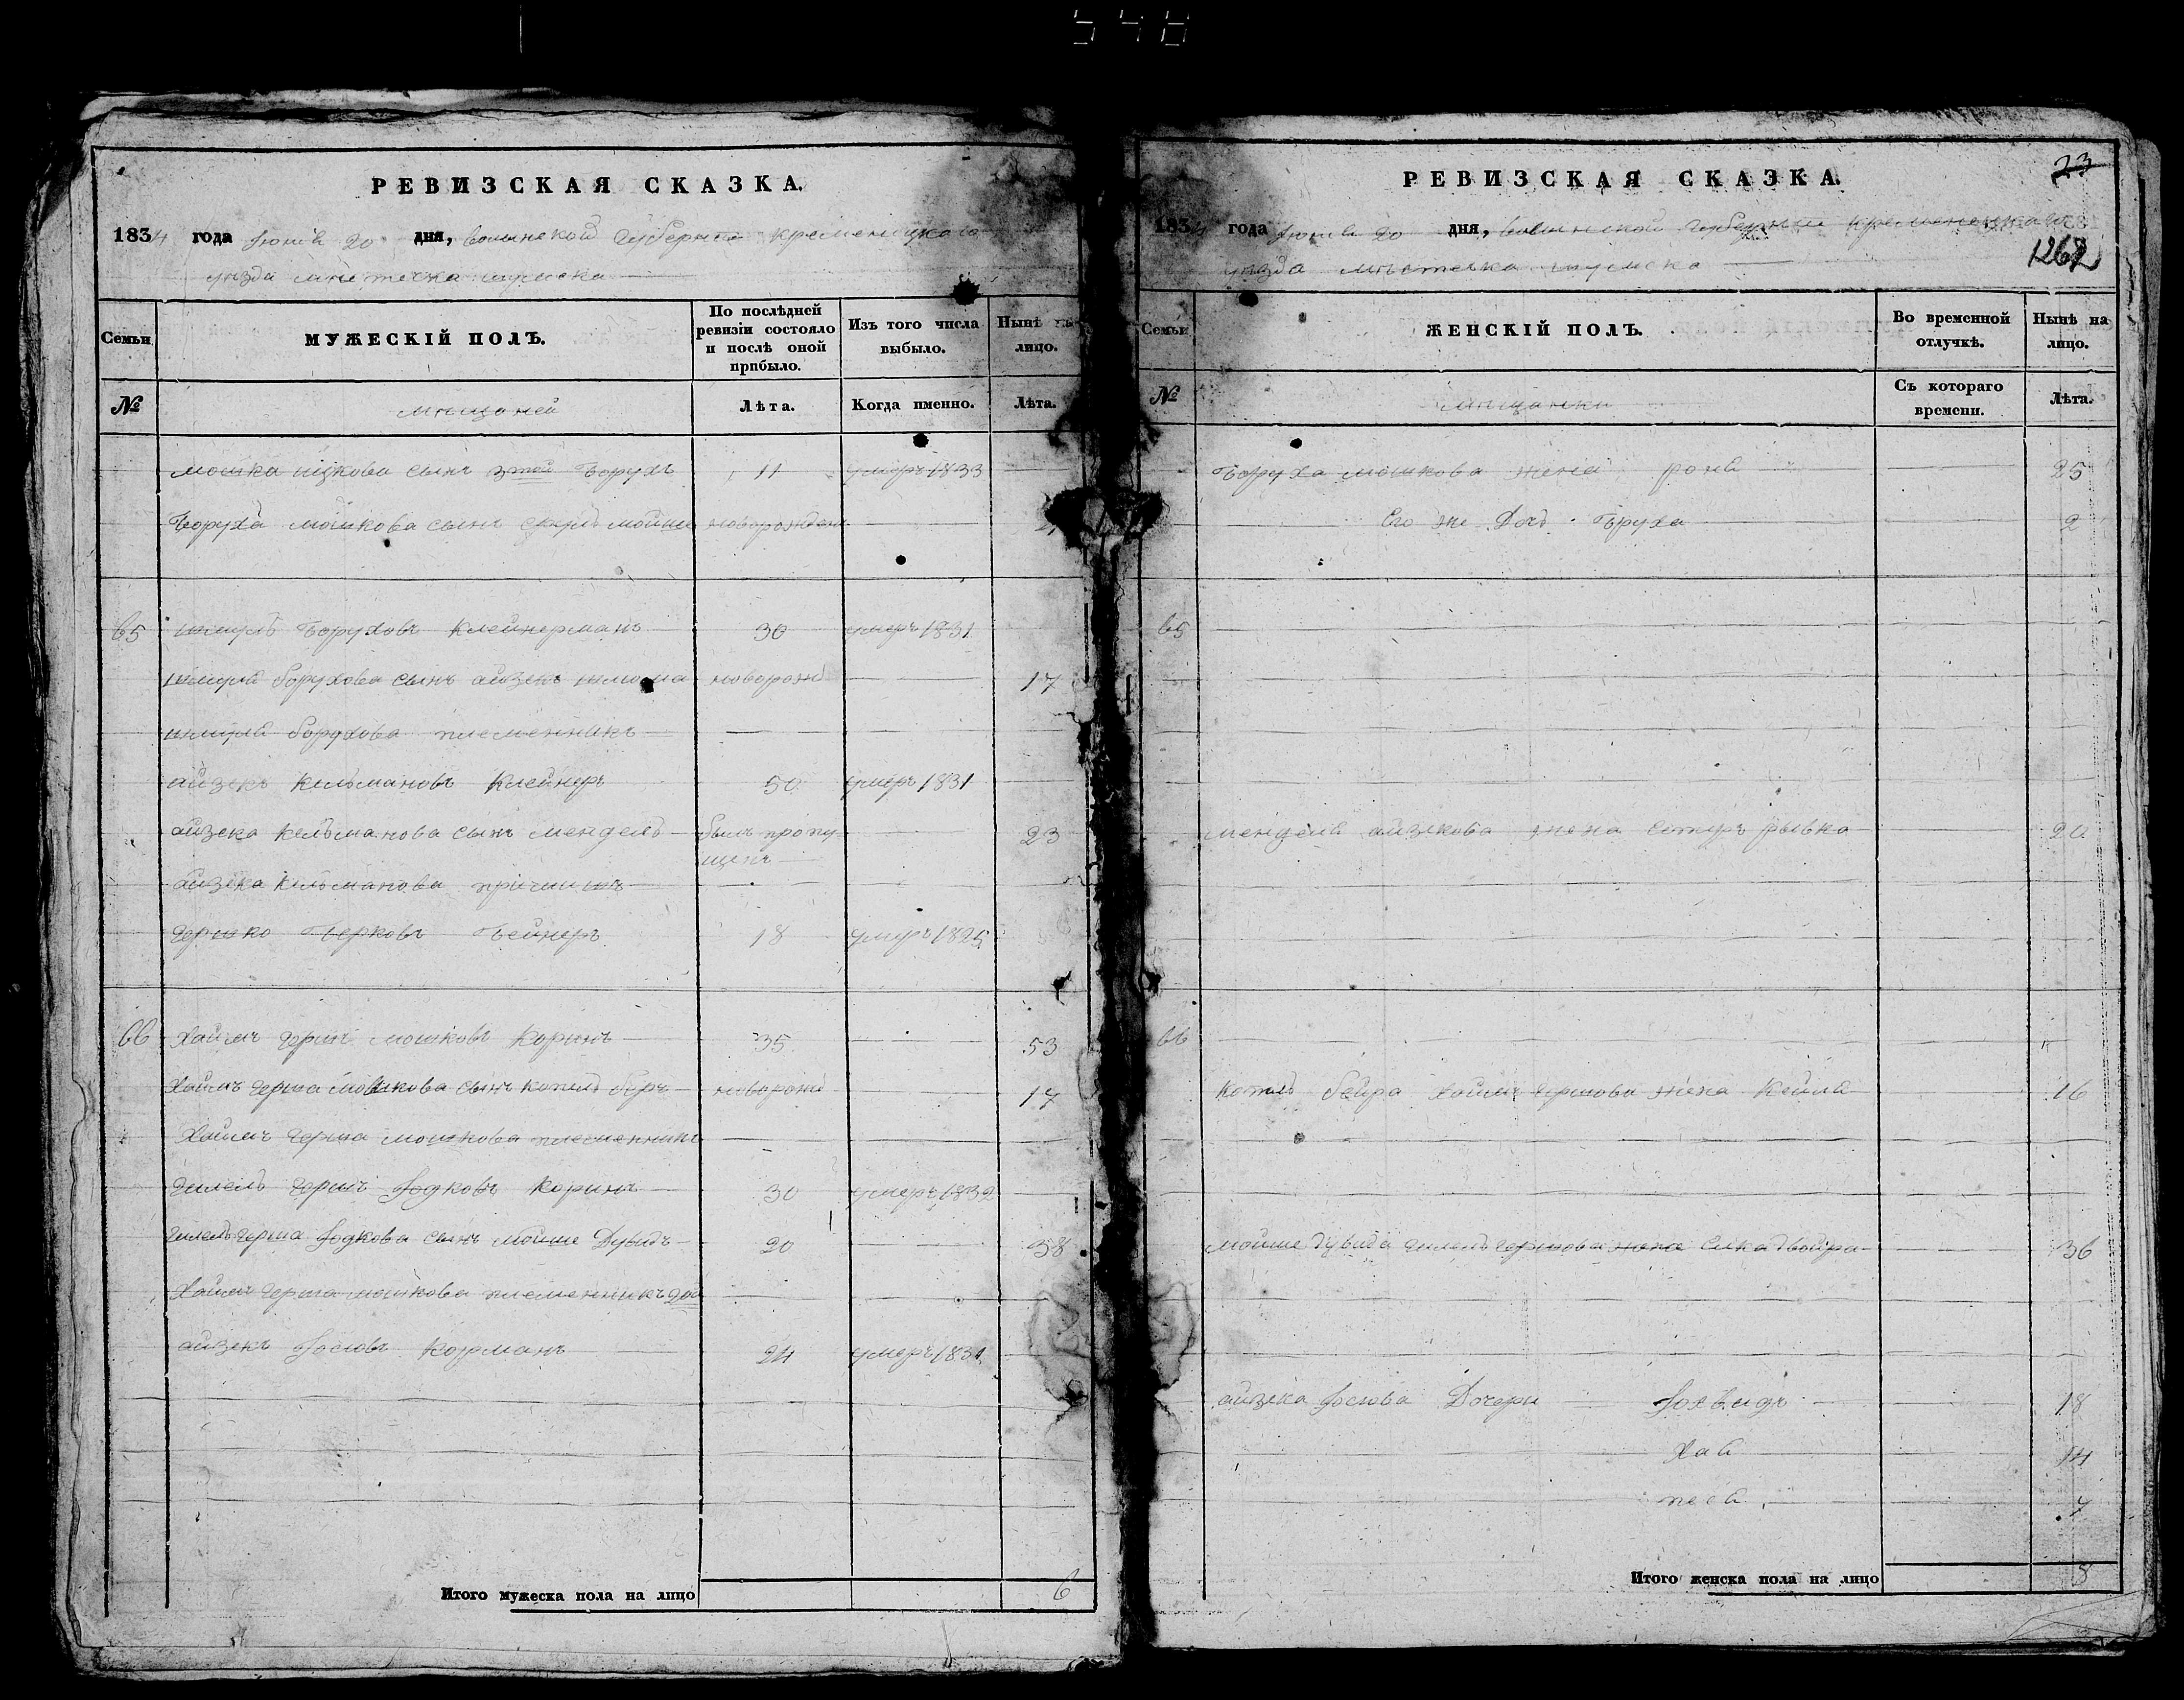 548
РЕВИЗСКАЯ СКАЗКА.
1834 года Июня 20 дня, волынской губерніи кременецкаго
уезда местечка шумска
Семьи
МУЖЕСКІЙ ПОЛЪ.
По послѣдней ревизіи состояло и послѣ оной прибыло.
Изъ того числа выбыло.
Нынѣ на лицо.
№
мещаней
Лѣта.
Когда именно.
Лѣта.
мошка ицкова сынъ 3той Борухъ 11 умеръ 1833
Боруха мошкова сынъ мойше новорожден
65 шмуль Боруховъ Клейнерманъ 30 умеръ 1831
шмуля борухова сынъ айзекъ шлиома новорожд 17
шмуля борухова племенникъ
айзекъ Кельмановъ Клейнеръ 50 умеръ 1831
айзека Кельманова сынъ мендель былъ пропу 23
щенъ
айзека Кельманова
гершко Берковъ Бейнеръ 18 умеръ 1825
66 Хаимъ гершъ мошковъ Коринъ 35 53
Хаимъ герша мошкова сынъ беръ новорожд 17
Хаимъ герша мошкова племенникъ
гилель гершъ Іодковъ Коринъ 30 умеръ 1832
гилель герша Іодкова сынъ мойше Дувидъ 20 38
Хаимъ герша мошкова племенникъ 2й
айзекъ Іосіовъ Корманъ 24 умеръ 1831
Итого мужеска пола на лицо 6
РЕВИЗСКАЯ СКАЗКА.
23
1834 года Июня 20 дня, волынской губерніи кременецкаго
1262
уезда местечка шумска
Семьи
ЖЕНСКІЙ ПОЛЪ.
Во временной отлучкѣ.
Нынѣ на лицо.
№
мещанки
Съ котораго времени.
Лѣта.
Боруха мошкова жена роня 25
Его же Дочь Бруха 2
65
менделя айзекова жена рывка 20
66
бейра Хаимъ гершова жена Кейля 16
мойше Дувида гилель гершова жена Елка двойра 36
айзека Іосіова Дочери 18
Хая 14
песя 7
Итого женска пола на лицо 8